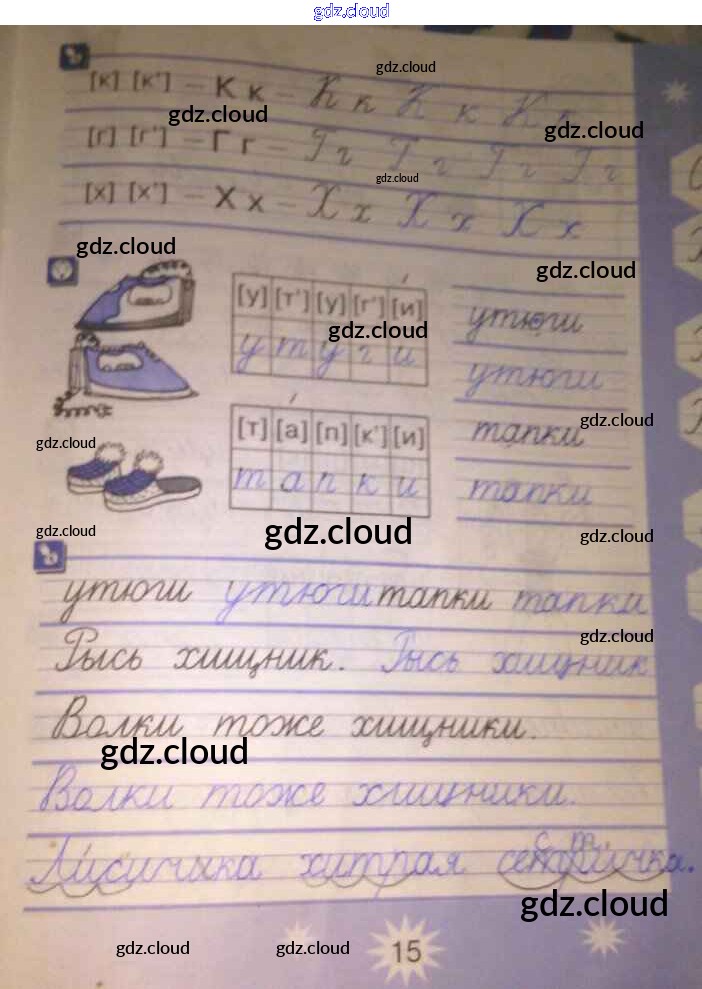 gdz.cloud
gdz.cloud
[к] [к'] – К к – К к К к К к
gdz.cloud
gdz.cloud
[г] [г'] – Г г – Г г Г г Г г Г г
gdz.cloud
[х] [х'] – Х х – Х х Х х Х х
gdz.cloud
gdz.cloud
[у] [т'] [у] [г'] [и]
утюги
gdz.cloud
у т у г и
утюги
gdz.cloud
[т] [а] [п] [к'] [и]
тапки
gdz.cloud
т а п к и
тапки
gdz.cloud
gdz.cloud
gdz.cloud
утюги утюги тапки тапки
gdz.cloud
Рысь хищник. Рысь хищник
Волки тоже хищники.
gdz.cloud
Волки тоже хищники.
хитрая
gdz.cloud
gdz.cloud
gdz.cloud
15